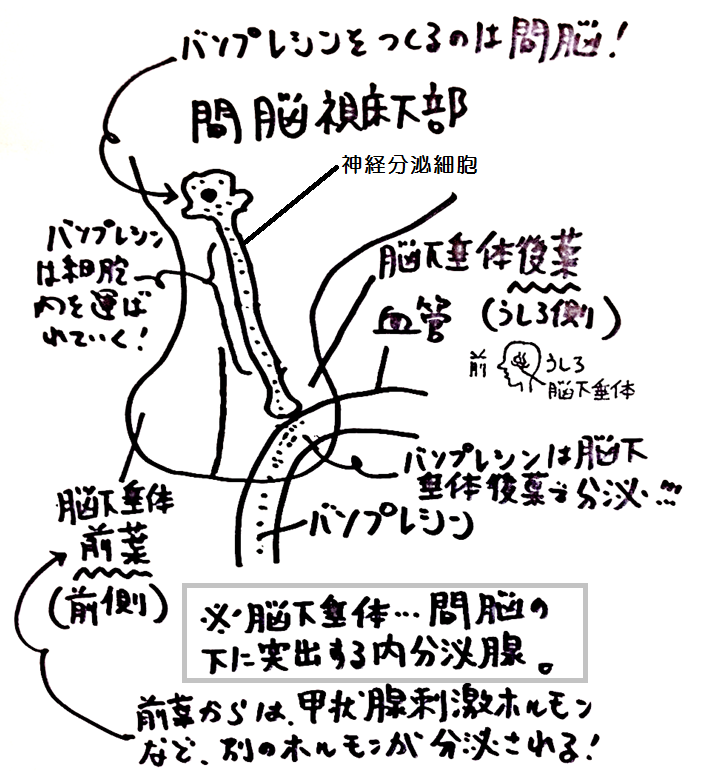 バソプレシンをつくるのは間脳!
間脳視床下部
神経分泌細胞
バソプレシン
は細胞
内を運ば
れていく!
脳下垂体後葉
(うしろ側)
血管
前
うしろ
脳下垂体
バソプレシンは脳下
垂体後葉で分泌…!!!
バソプレシン
脳下垂体
前葉
(前側)
※脳下垂体…間脳の
下に突出する内分泌腺。
前葉からは、甲状腺刺激ホルモン
など、別のホルモンが分泌される!